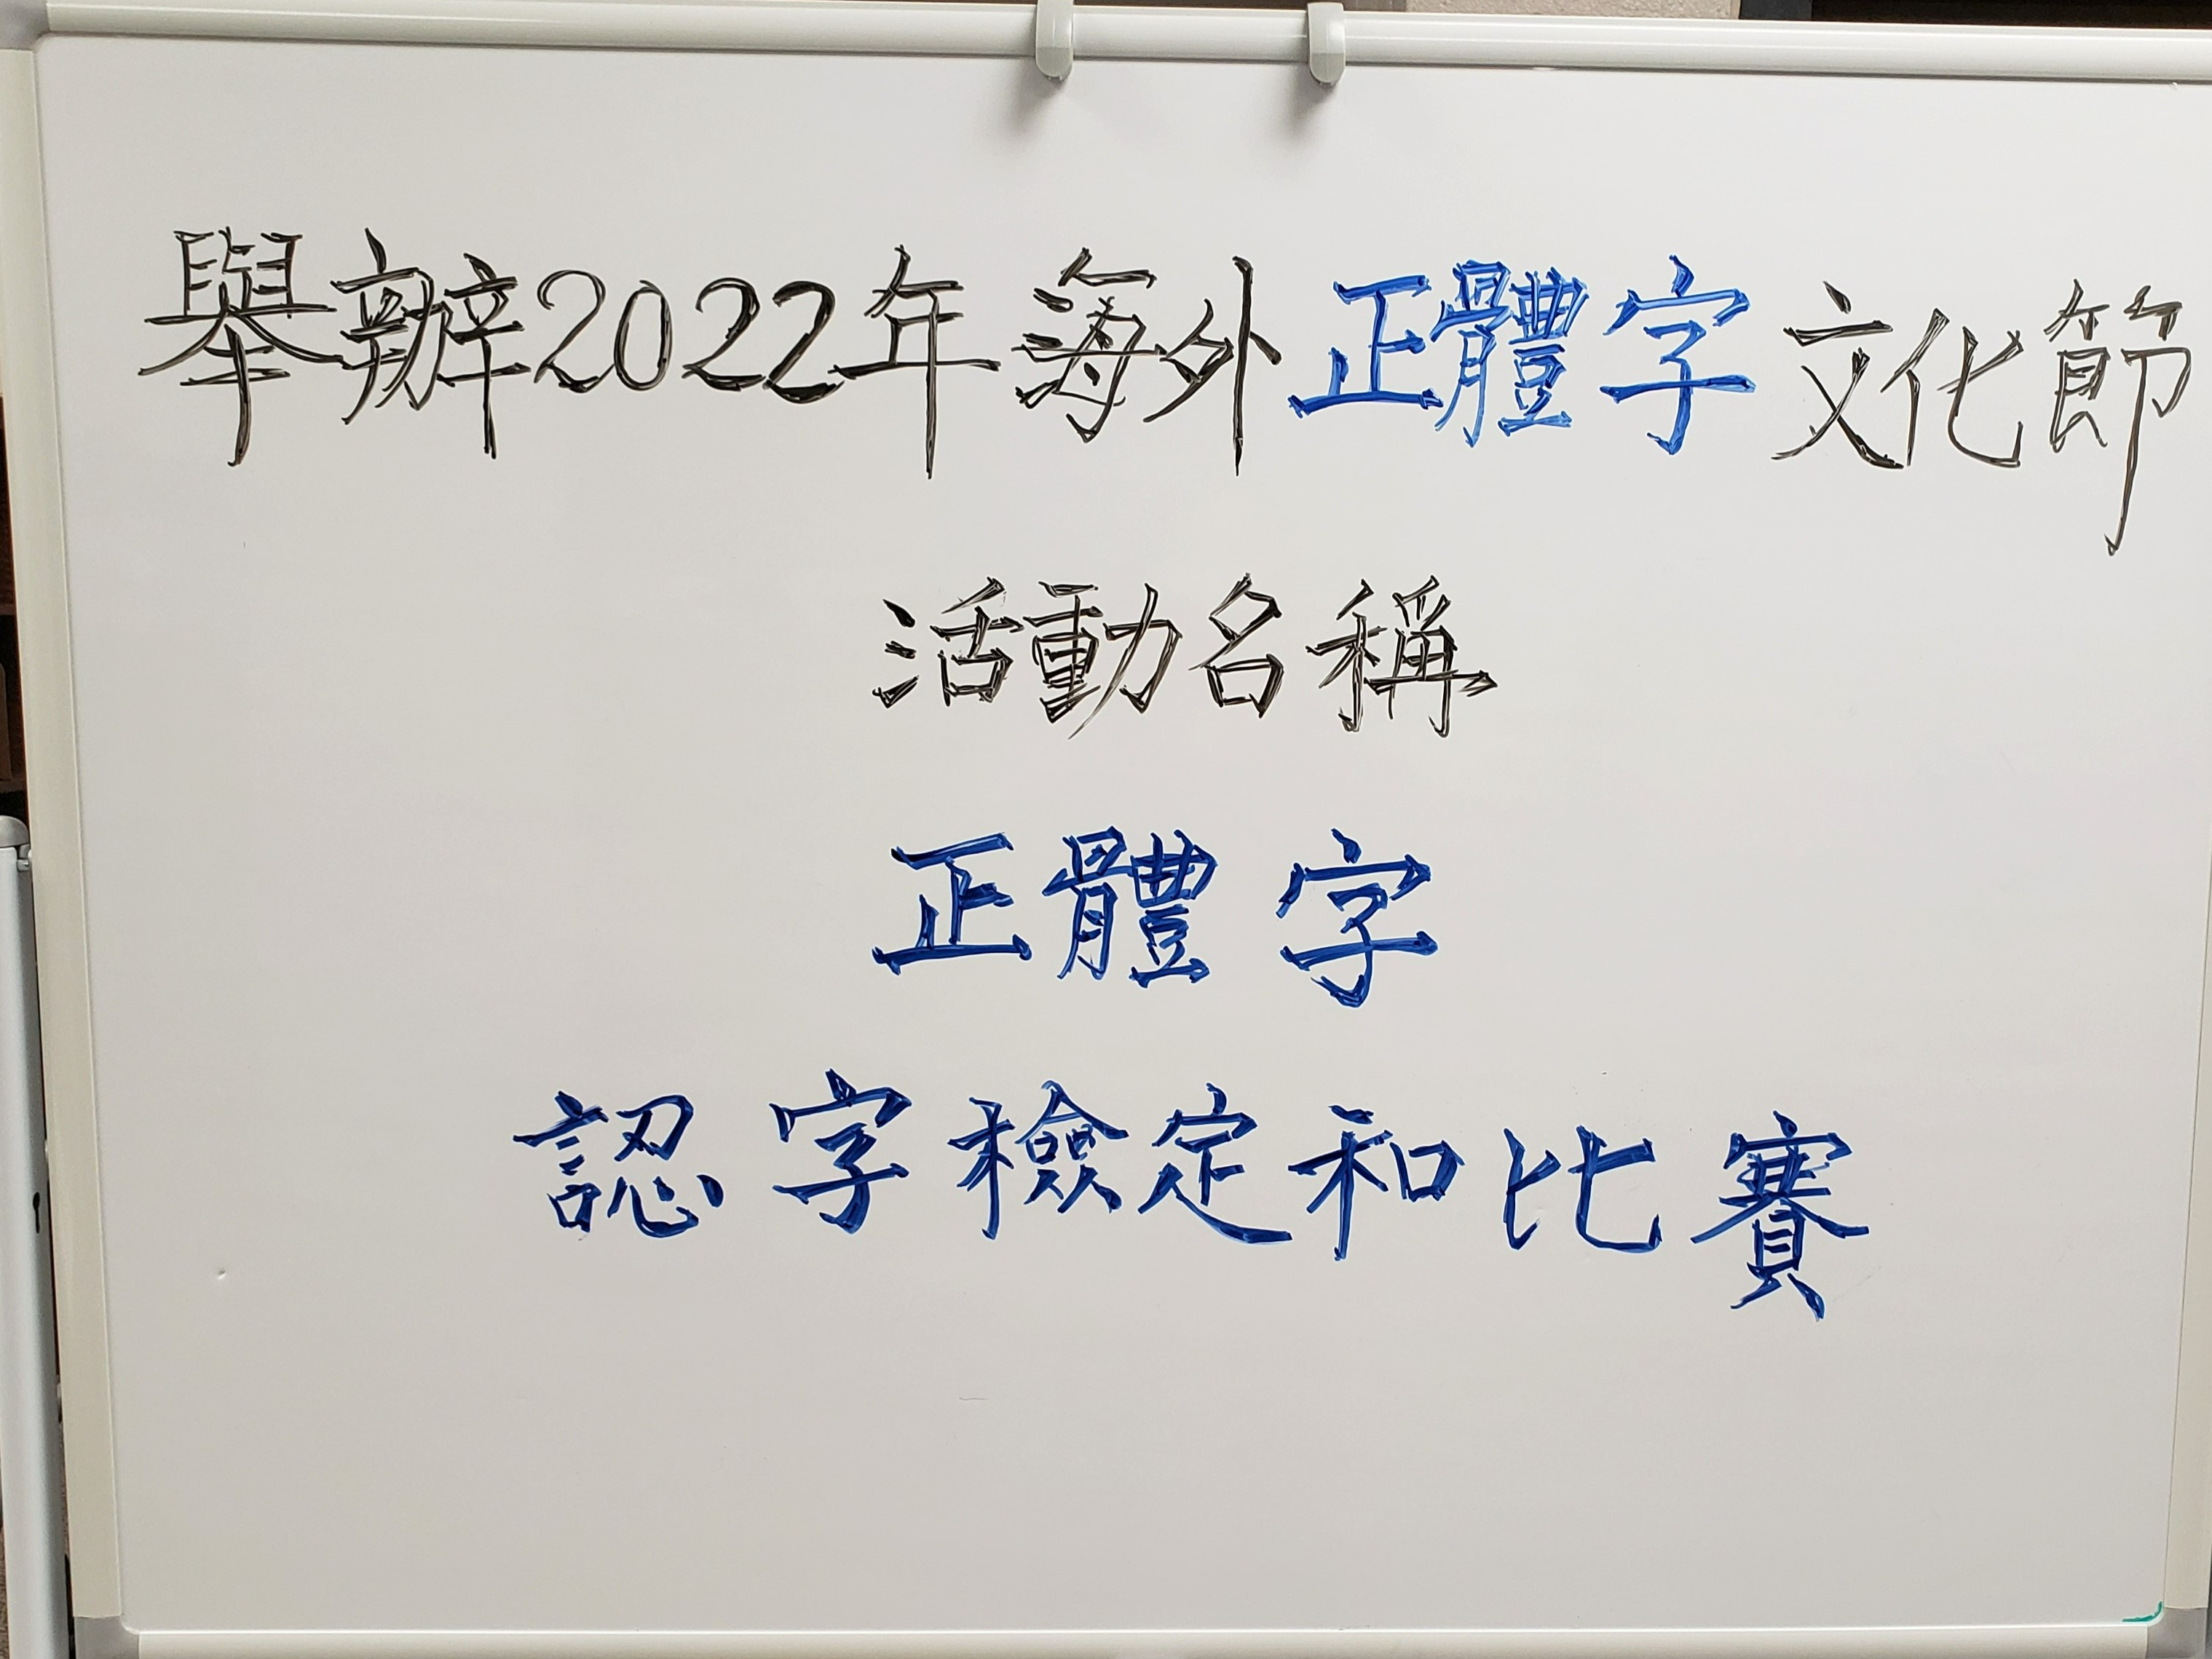 舉辦2022年海外正體字文化節
活動名稱
正體字
認字檢定和比賽